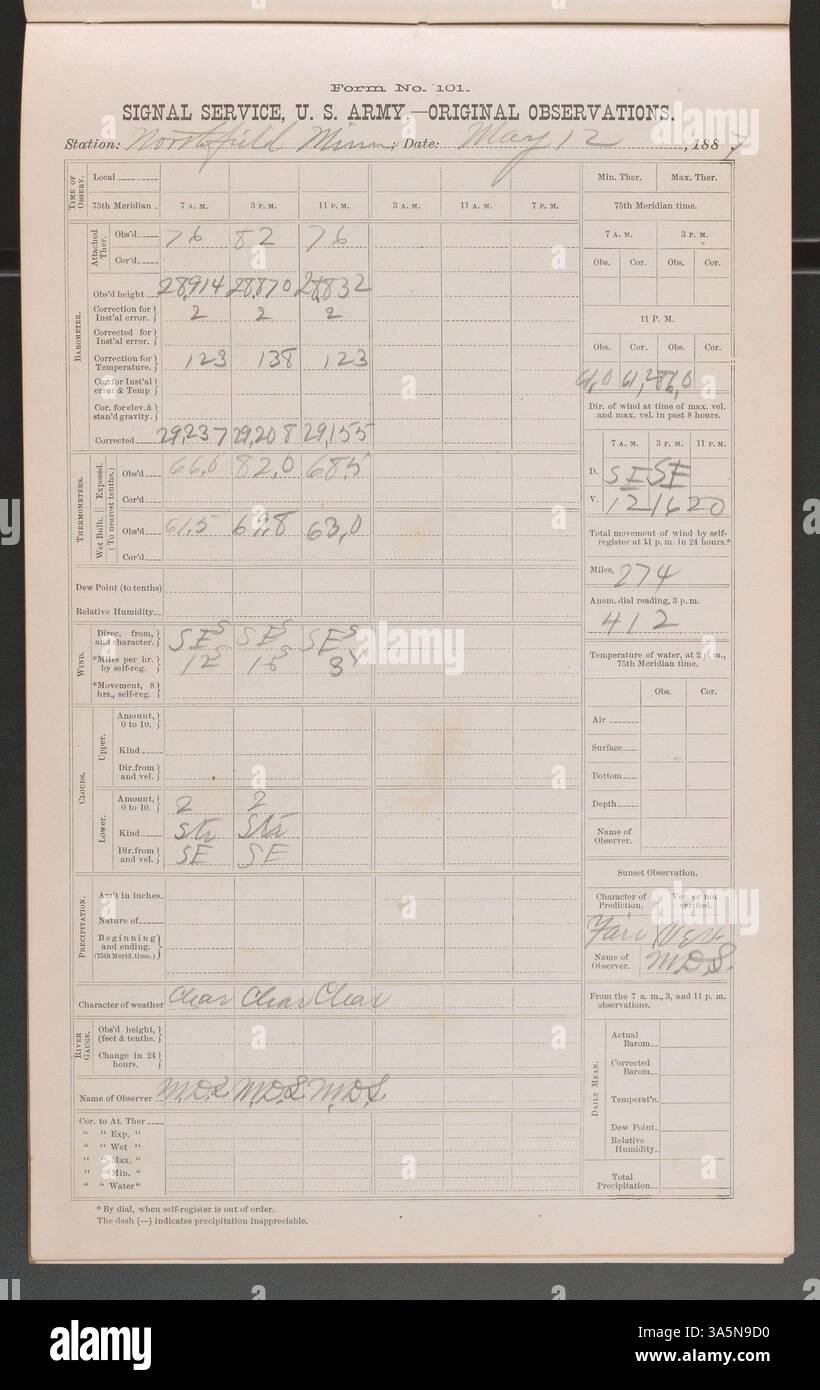 Form No. 101.
SIGNAL SERVICE, U. S. ARMY.—ORIGINAL OBSERVATIONS.
Station: Northfield Minn. Date: May 12, 1887
TIME OF OBSERV.
Local
75th Meridian 7 A. M. 3 P. M. 11 P. M. 3 A. M. 11 A. M. 7 P. M.
BAROMETER.
Attached Ther.
Obs'd 76 82 76
Cor'd
Obs'd height 28,914 28,870 28,832
Correction for Inst'al error. 2 2 2
Corrected for Inst'al error.
Correction for Temperature. 123 138 123
Cor. for Inst'al error & Temp
Cor. for elev. & stan'd gravity.
Corrected 29,237 29,208 29,155
THERMOMETERS.
(To nearest tenths.)
Exposed.
Obs'd 66,0 82,0 68,5
Cor'd
Wet Bulb.
Obs'd 61,5 69,8 63,0
Cor'd
Dew Point (to tenths)
Relative Humidity
WIND.
Direc. from, and character. SE S SE S SE S
*Miles per hr. by self-reg. 12
*Movement, 8 hrs., self-reg.
CLOUDS.
Upper.
Amount, 0 to 10.
Kind
Dir. from and vel.
Lower.
Amount, 0 to 10. 2 2
Kind
Dir. from and vel. SE SE
PRECIPITATION.
Am't in inches.
Nature of
Beginning and ending. (75th Merid. time.)
Character of weather Clear Clear Clear
RIVER GAUGE.
Obs'd height, (feet & tenths.)
Change in 24 hours.
Name of Observer M.D.S M.D.S M.D.S
Cor. to At. Ther
“ “ Exp. “
“ “ Wet “
“ “ Max. “
“ “ Min. “
“ “ Water “
* By dial, when self-register is out of order.
The dash (—) indicates precipitation inappreciable.
Min. Ther. Max. Ther.
75th Meridian time.
7 A. M. 3 P. M.
Obs. Cor. Obs. Cor.
11 P. M.
Obs. Cor. Obs. Cor.
61,0 61,2 86,0
Dir. of wind at time of max. vel. and max. vel. in past 8 hours.
7 A. M. 3 P. M. 11 P. M.
D. SE SE
V. 12 16 20
Total movement of wind by self-register at 11 p. m. in 24 hours.*
Miles, 274
Anem. dial reading, 3 p. m.
412
Temperature of water, at 2 p. m., 75th Meridian time.
Obs. Cor.
Air
Surface
Bottom
Depth
Name of Observer.
Sunset Observation.
Character of Prediction. Ver. or not verified.
Fair Ver
Name of Observer. M.D.S.
From the 7 a. m., 3, and 11 p. m. observations.
DAILY MEAN.
Actual Barom
Corrected Barom
Temperat'e.
Dew Point
Relative Humidity
Total Precipitation
alamy
Image ID: 3A5N9D0
www.alamy.com